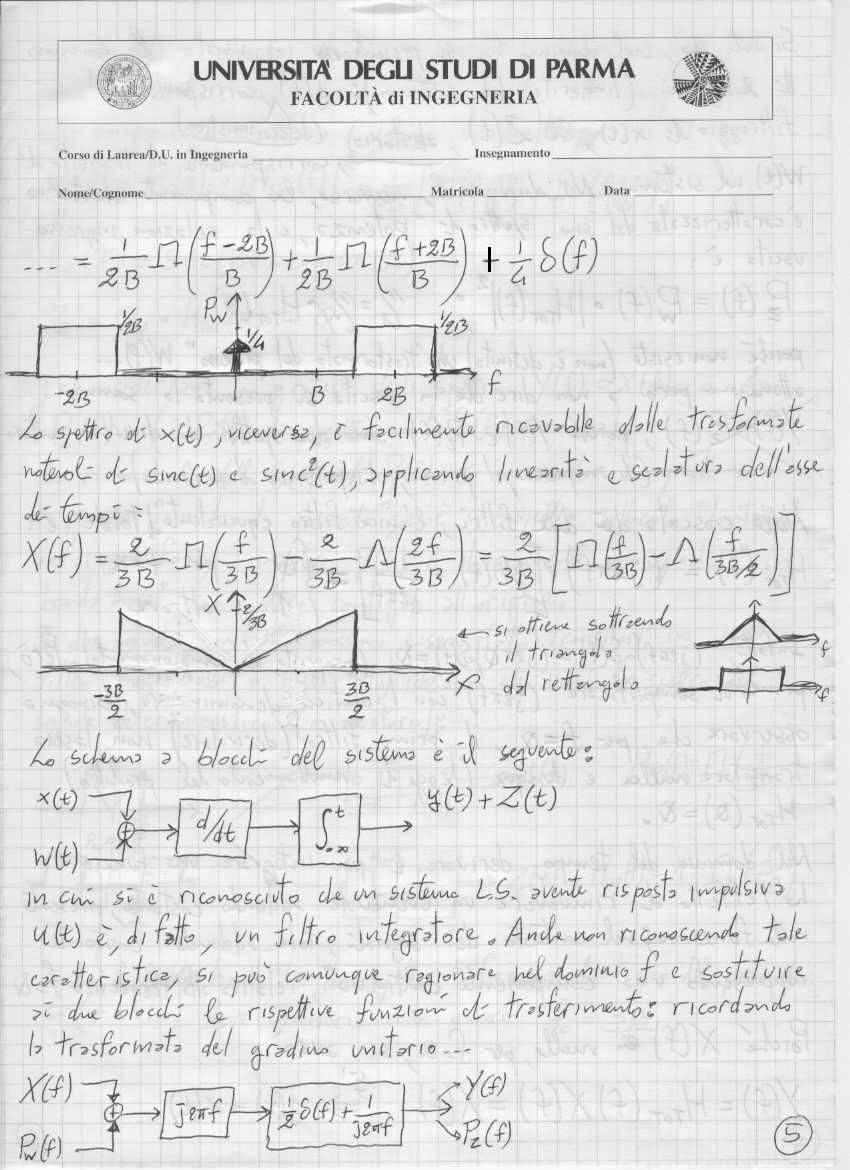 UNIVERSITA' DEGLI STUDI DI PARMA
FACOLTÀ di INGEGNERIA
Corso di Laurea/D.U. in Ingegneria Insegnamento
Nome/Cognome Matricola Data
... = 1/2B Π((f-2B)/B) + 1/2B Π((f+2B)/B) + 1/4 δ(f)
P_W
1/2B 1/4 1/2B
-2B B 2B f
Lo spettro di x(t), viceversa, è facilmente ricavabile dalle trasformate
notevoli di sinc(t) e sinc²(t), applicando linearità e scalatura dell'asse
dei tempi:
X(f) = 2/3B Π(f/3B) - 2/3B Λ(2f/3B) = 2/3B [Π(f/3B) - Λ(f/(3B/2))]
X 2/3B
-3B/2 3B/2 f
← si ottiene sottraendo
il triangolo
dal rettangolo
f
f
Lo schema a blocchi del sistema è il seguente:
x(t)
W(t)
+
d/dt
∫_-∞^t
y(t) + Z(t)
in cui si è riconosciuto che un sistema L.S. avente risposta impulsiva
u(t) è, di fatto, un filtro integratore. Anche non riconoscendo tale
caratteristica, si può comunque ragionare nel dominio f e sostituire
ai due blocchi le rispettive funzioni di trasferimento: ricordando
la trasformata del gradino unitario...
X(f)
P_W(f)
+
j2πf
1/2 δ(f) + 1/j2πf
Y(f)
P_Z(f)
5